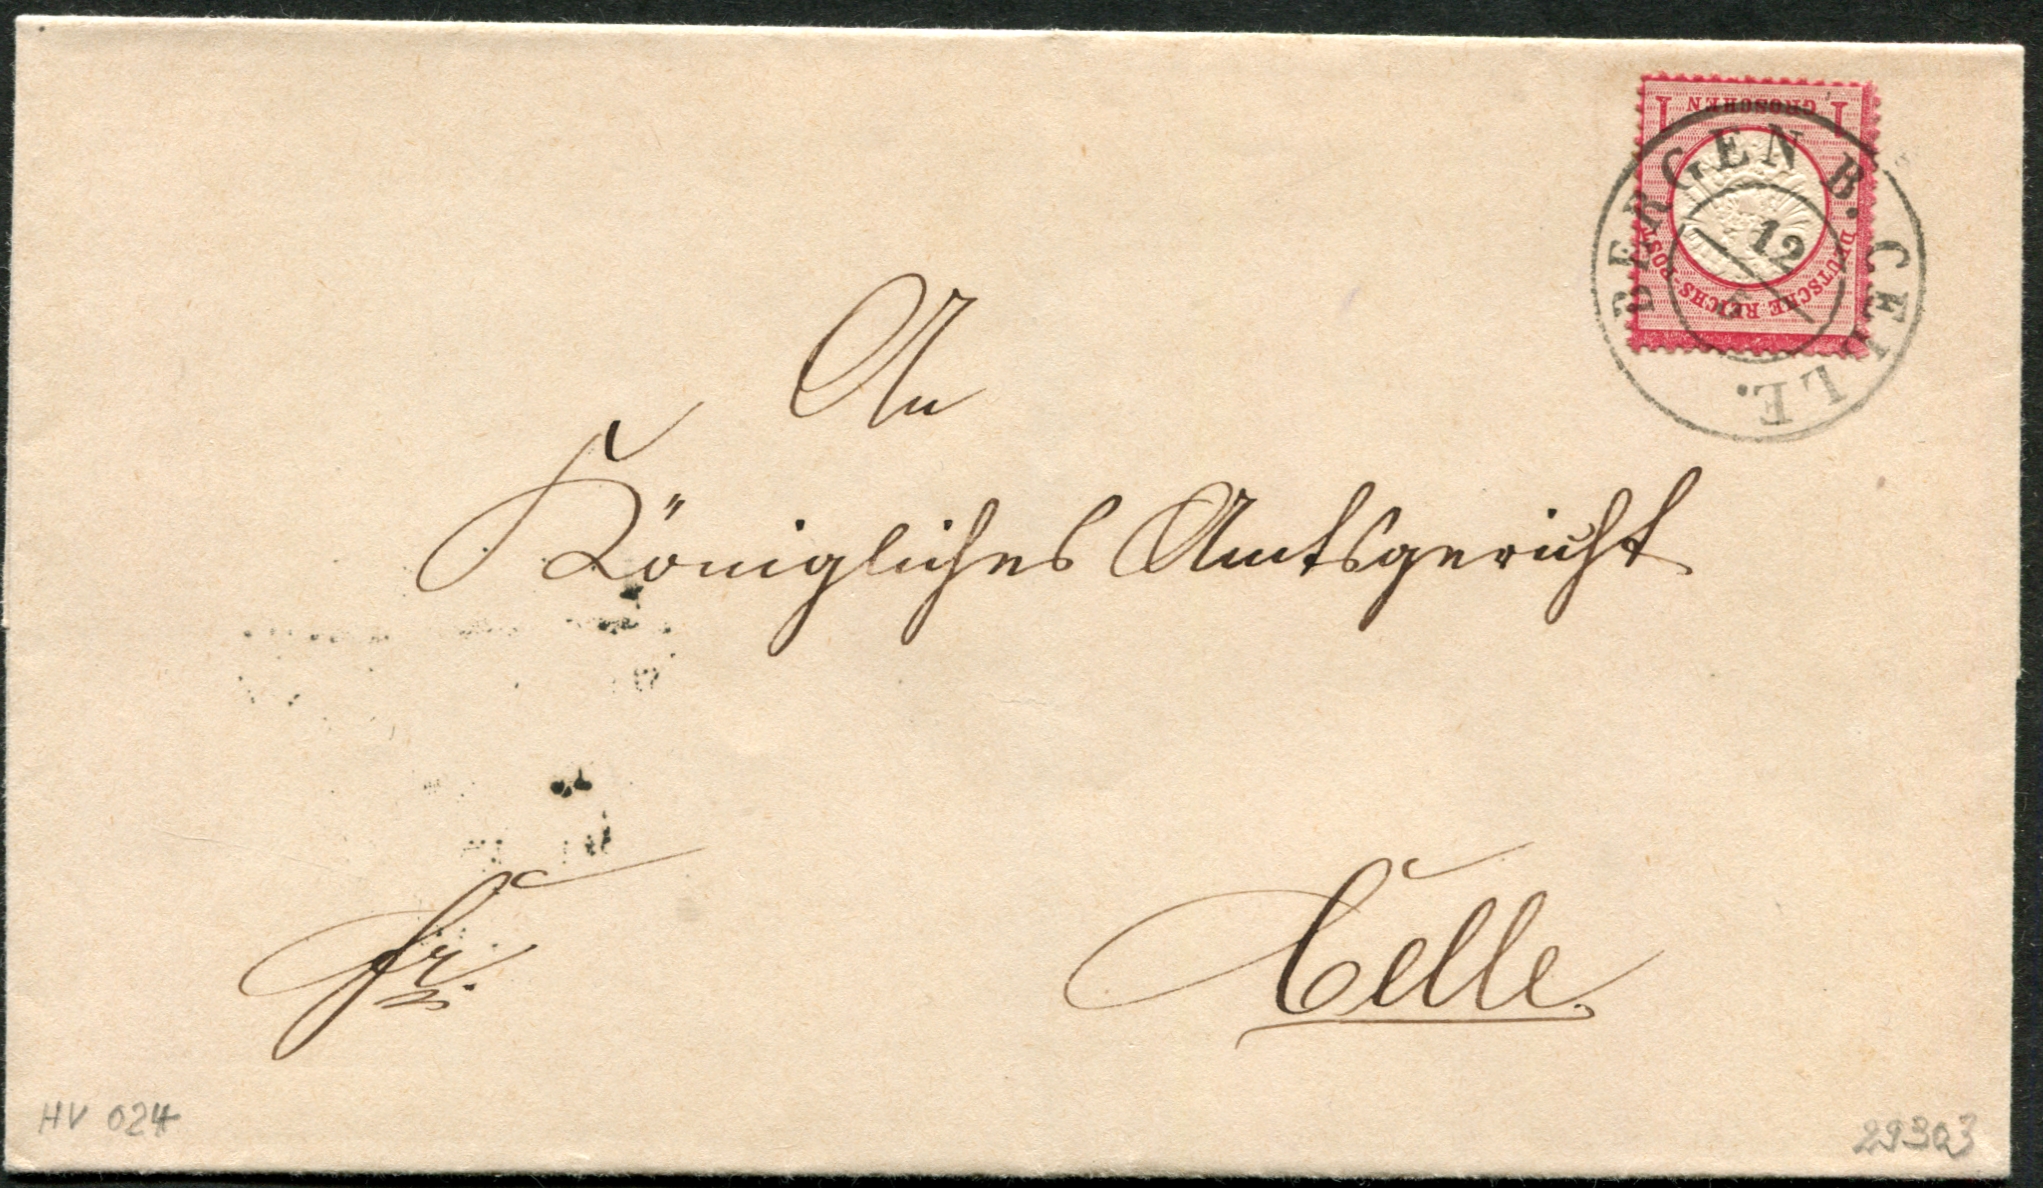 1 GROSCHEN 1
DEUTSCHE REICHS-POST
BERGEN B. CELLE.
12
An
Königliches Amtsgericht
fr.
Celle.
HV 024
29303